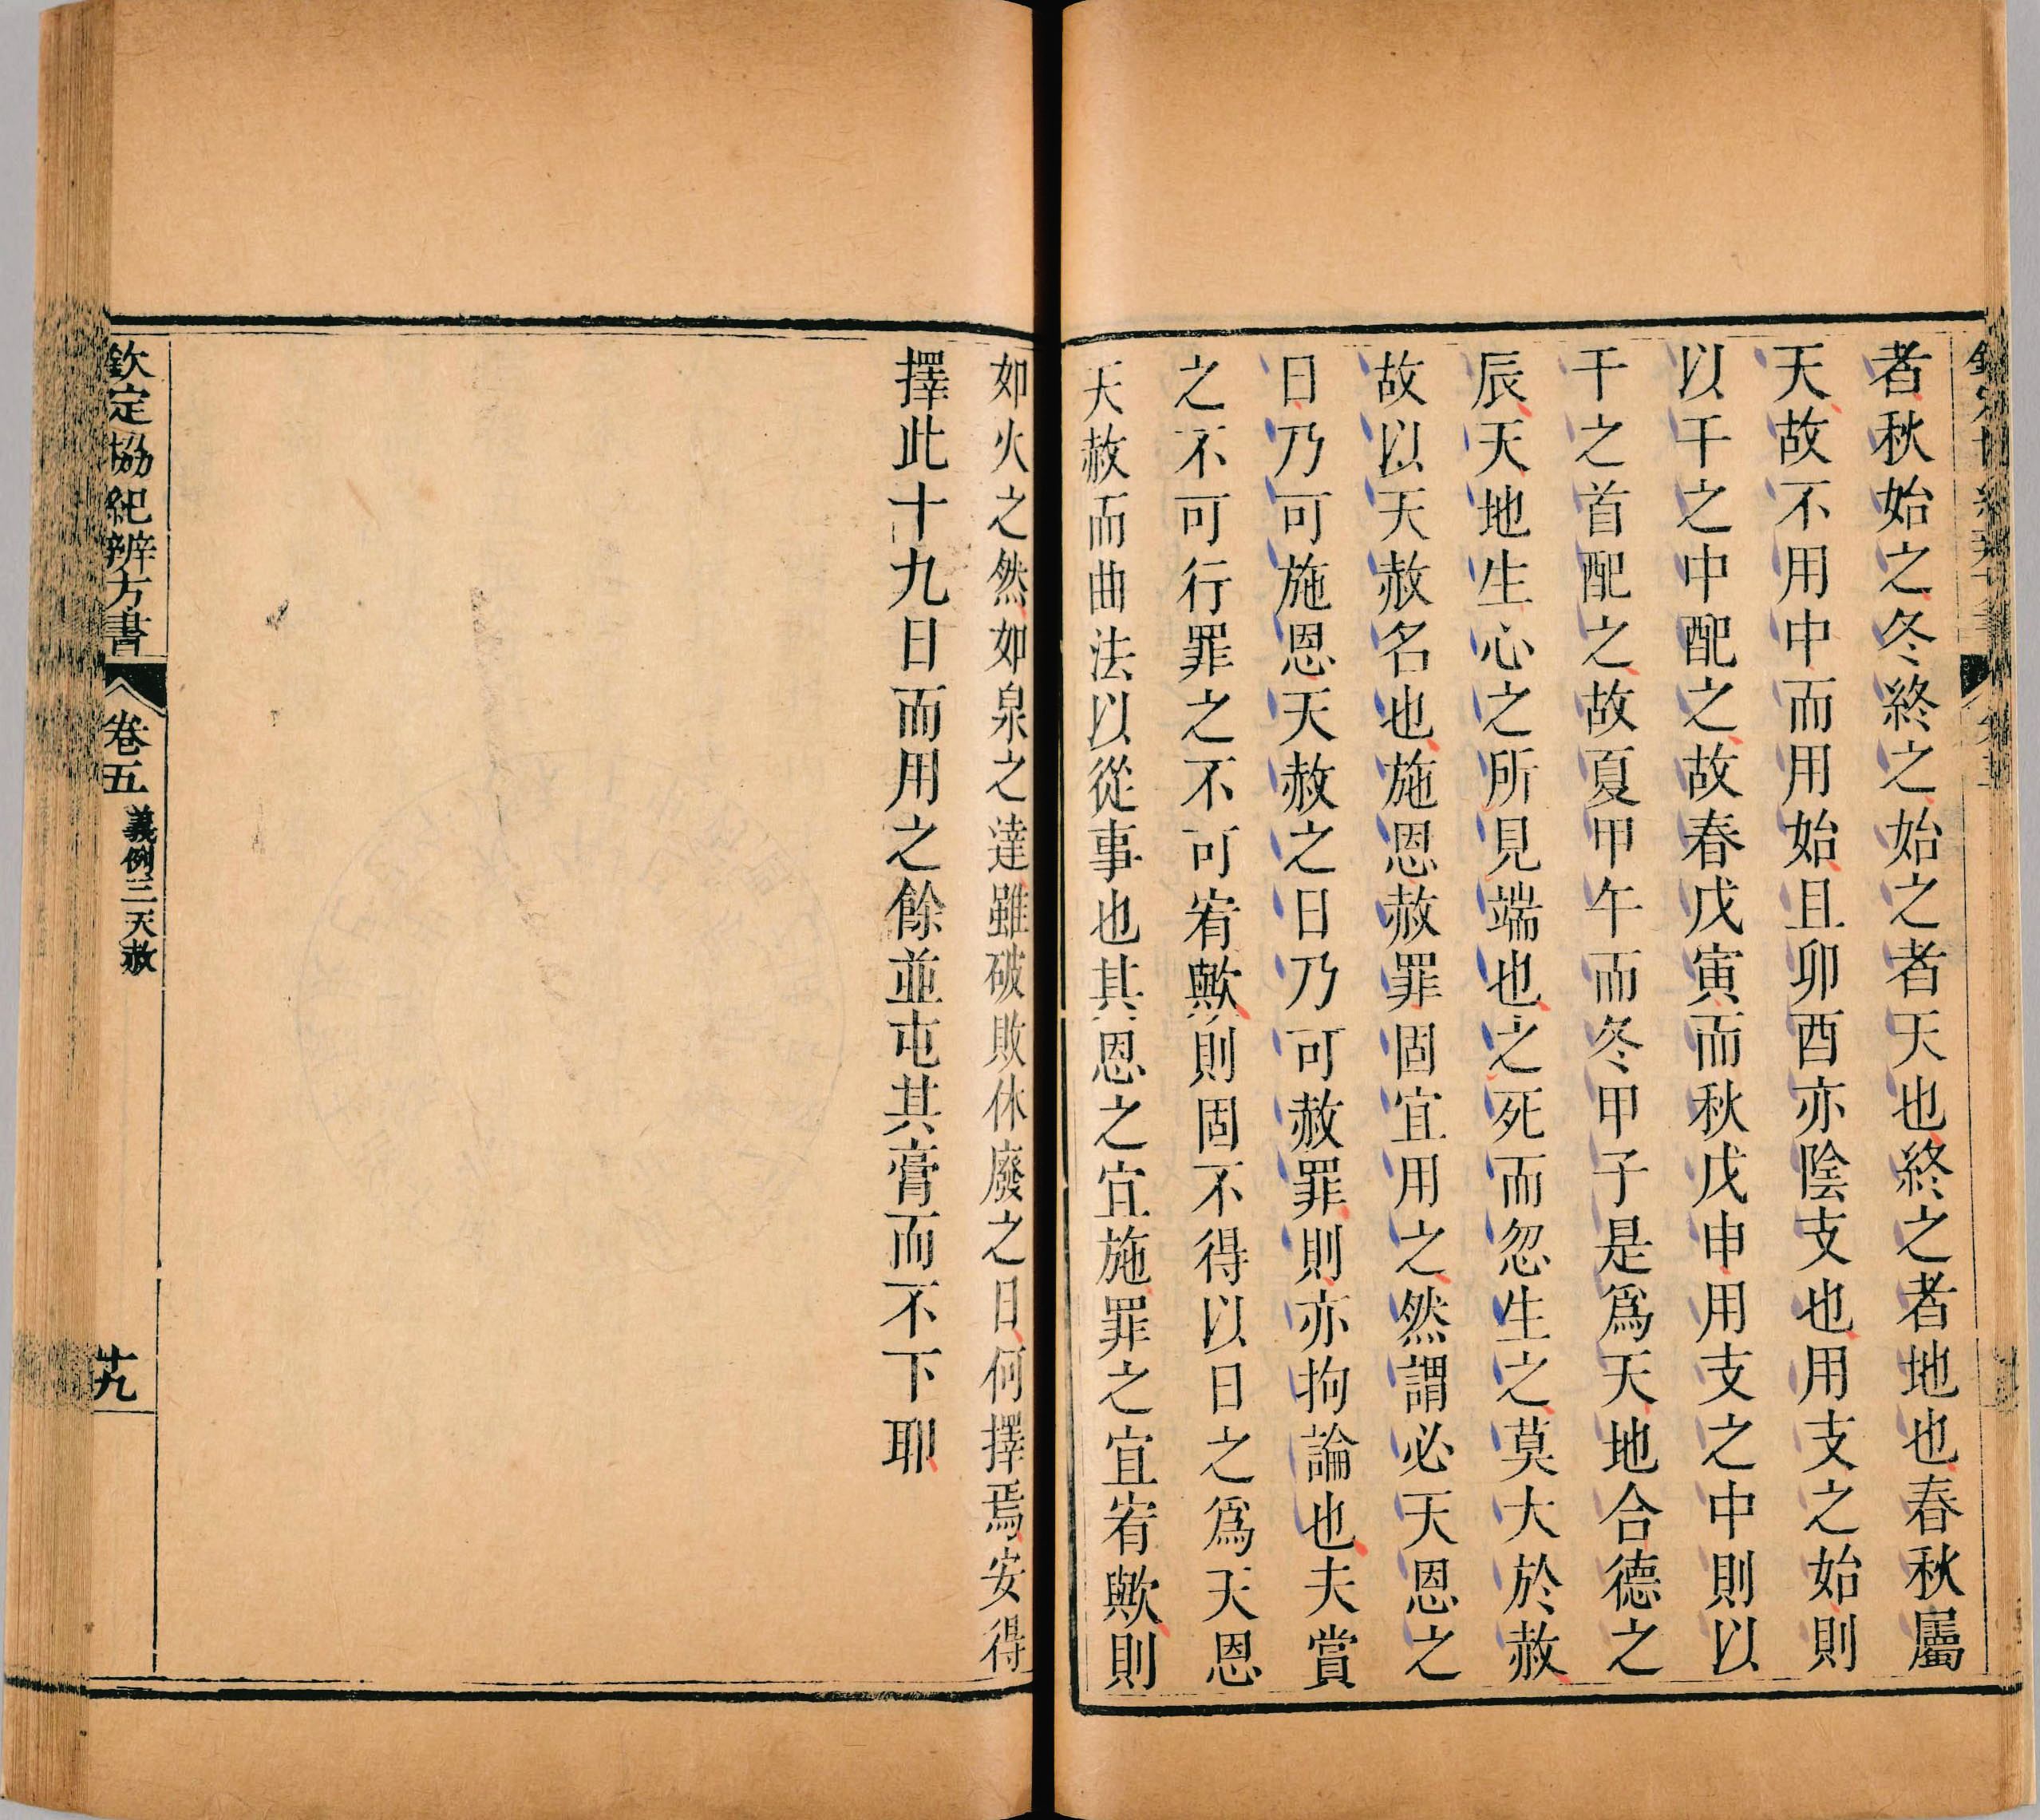 者秋始之冬終之始之者天也終之者地也春秋屬
天故不用中而用始且卯酉亦陰支也用支之始則
以干之中配之故春戊寅而秋戊申用支之中則以
干之首配之故夏甲午而冬甲子是爲天地合德之
辰天地生心之所見端也之死而忽生之莫大於赦
故以天赦名也施恩赦罪固宜用之然謂必天恩之
日乃可施恩天赦之日乃可赦罪則亦拘論也夫賞
之不可行罪之不可宥歟則固不得以日之爲天恩
天赦而曲法以從事也其恩之宜施罪之宜宥歟則
如火之然如泉之達雖破敗休廢之日何擇焉安得
擇此十九日而用之餘並屯其膏而不下耶
欽定協紀辨方書
卷五
義例三天赦
十九